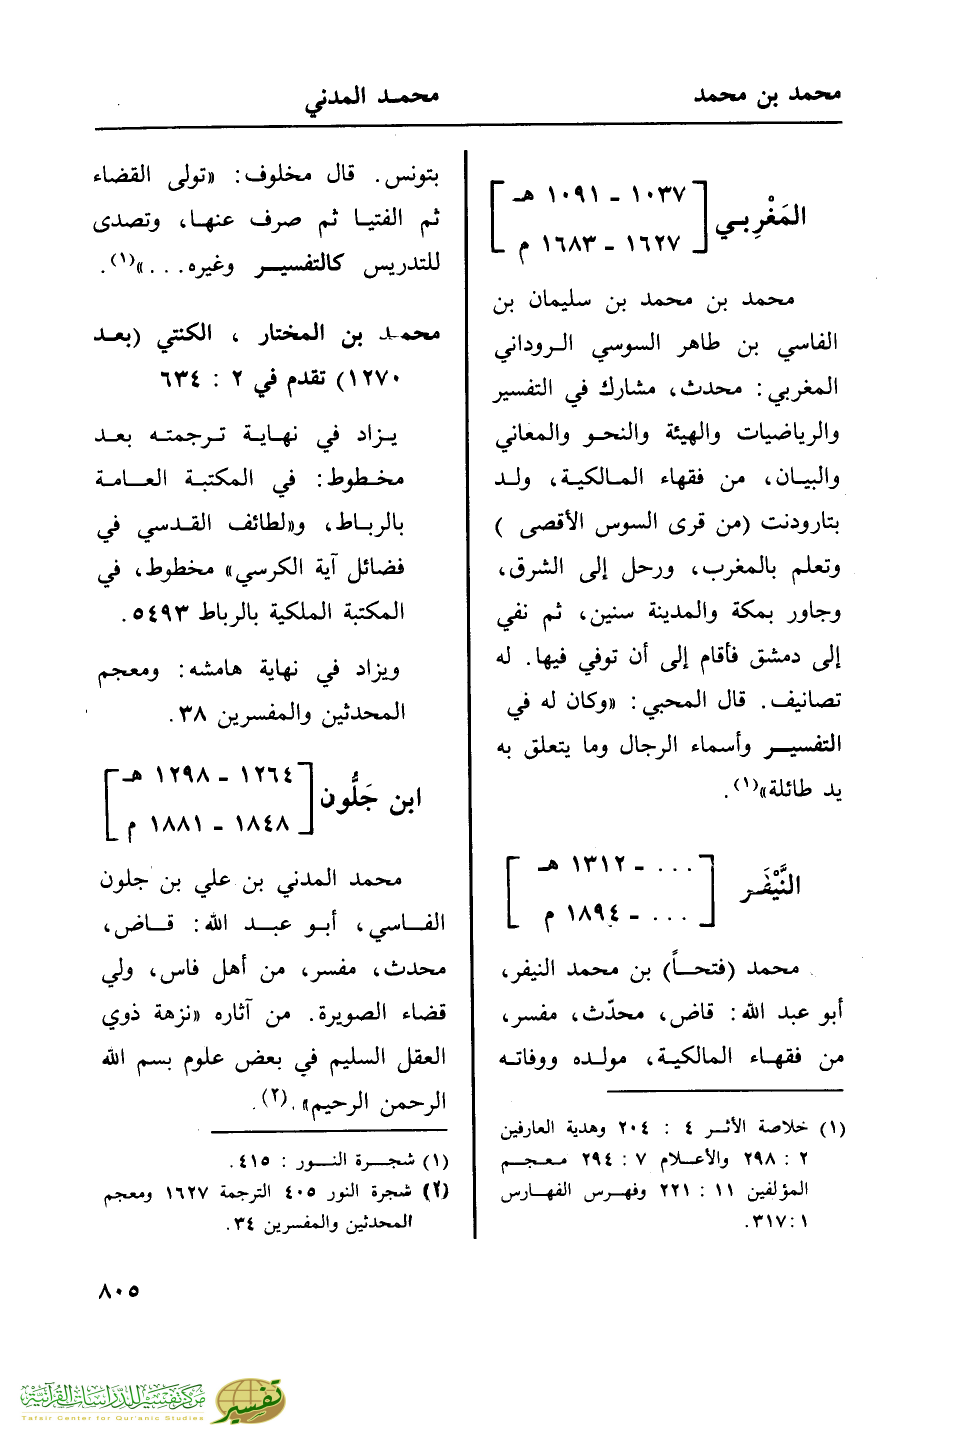 محمد بن محمد
محمد المدني
المَغْرِبي
[١٠٣٧ - ١٠٩١ هـ
١٦٢٧ - ١٦٨٣ م]
محمد بن محمد بن سليمان بن
الفاسي بن طاهر السوسي الروداني
المغربي: محدث، مشارك في التفسير
والرياضيات والهيئة والنحو والمعاني
والبيان، من فقهاء المالكية، ولد
بتارودنت (من قرى السوس الأقصى )
وتعلم بالمغرب، ورحل إلى الشرق،
وجاور بمكة والمدينة سنين، ثم نفي
إلى دمشق فأقام إلى أن توفي فيها. له
تصانيف. قال المحبي: «وكان له في
التفسير وأسماء الرجال وما يتعلق به
يد طائلة»(١).
النَّيْفَر
[... - ١٣١٢ هـ
... - ١٨٩٤ م]
محمد (فتحاً) بن محمد النيفر،
أبو عبد الله: قاض، محدّث، مفسر،
من فقهاء المالكية، مولده ووفاته
(١) خلاصة الأثر ٤ : ٢٠٤ وهدية العارفين
٢ : ٢٩٨ والأعلام ٧ : ٢٩٤ معجم
المؤلفين ١١ : ٢٢١ وفهرس الفهارس
١ :٣١٧.
بتونس. قال مخلوف: «تولى القضاء
ثم الفتيا ثم صرف عنها، وتصدى
للتدريس كالتفسير وغيره...»(١).
محمد بن المختار ، الكنتي (بعد
١٢٧٠) تقدم في ٢ : ٦٣٤
يزاد في نهاية ترجمته بعد
مخطوط: في المكتبة العامة
بالرباط، و«لطائف القدسي في
فضائل آية الكرسي» مخطوط، في
المكتبة الملكية بالرباط ٥٤٩٣.
ويزاد في نهاية هامشه: ومعجم
المحدثين والمفسرين ٣٨.
ابن جَلُّون
[١٢٦٤ - ١٢٩٨ هـ
١٨٤٨ - ١٨٨١ م]
محمد المدني بن علي بن جلون
الفاسي، أبو عبد الله: قاض،
محدث، مفسر، من أهل فاس، ولي
قضاء الصويرة. من آثاره «نزهة ذوي
العقل السليم في بعض علوم بسم الله
الرحمن الرحيم».(٢).
(١) شجرة النور : ٤١٥.
(٢) شجرة النور ٤٠٥ الترجمة ١٦٢٧ ومعجم
المحدثين والمفسرين ٣٤.
٨٠٥
مركز تفسير للدراسات القرآنية
Tafsir Center for Qur'anic Studies
تفسير